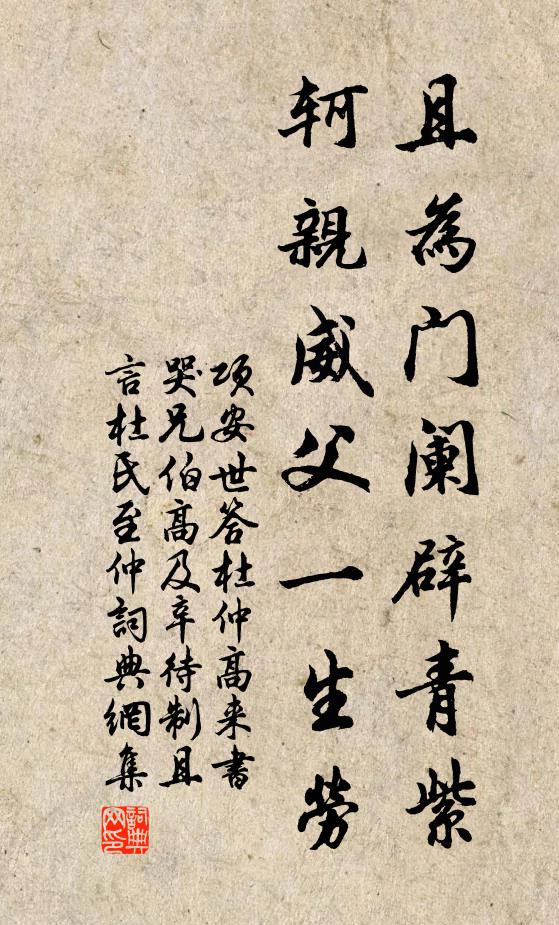 且為门阑辟青紫
轲親威父一生勞
项安世答杜仲高来書
哭兄伯高及辛待制且
言杜氏至仲詞典網集
詞典
网印